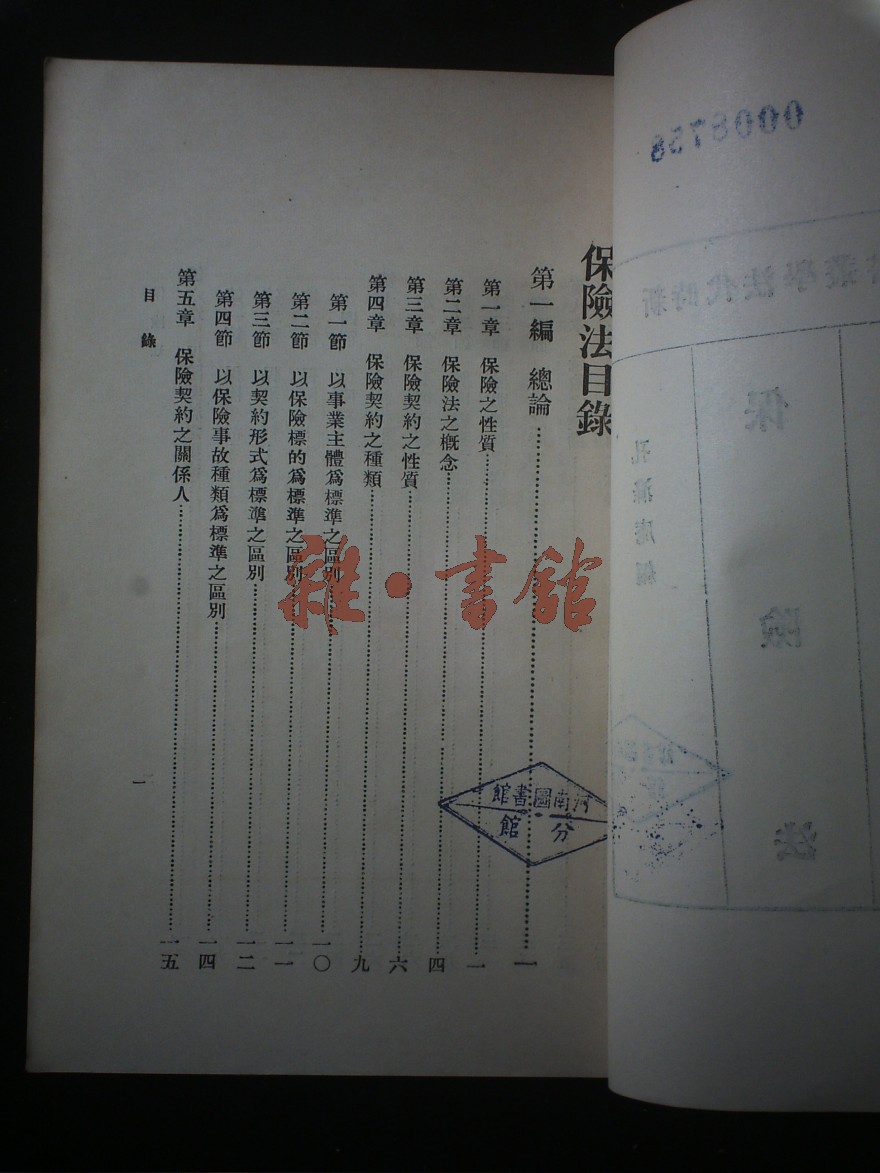 保險法目錄
第一編 總論……一
第一章 保險之性質……一
第二章 保險法之概念……四
第三章 保險契約之性質……六
第四章 保險契約之種類……九
第一節 以事業主體爲標準之區別……一〇
第二節 以保險標的爲標準之區別……一一
第三節 以契約形式爲標準之區別……一二
第四節 以保險事故種類爲標準之區別……一四
第五章 保險契約之關係人……一五
目錄
一
雜·書館
河南圖書館
分館
0008758
新時代法學叢書
保險法